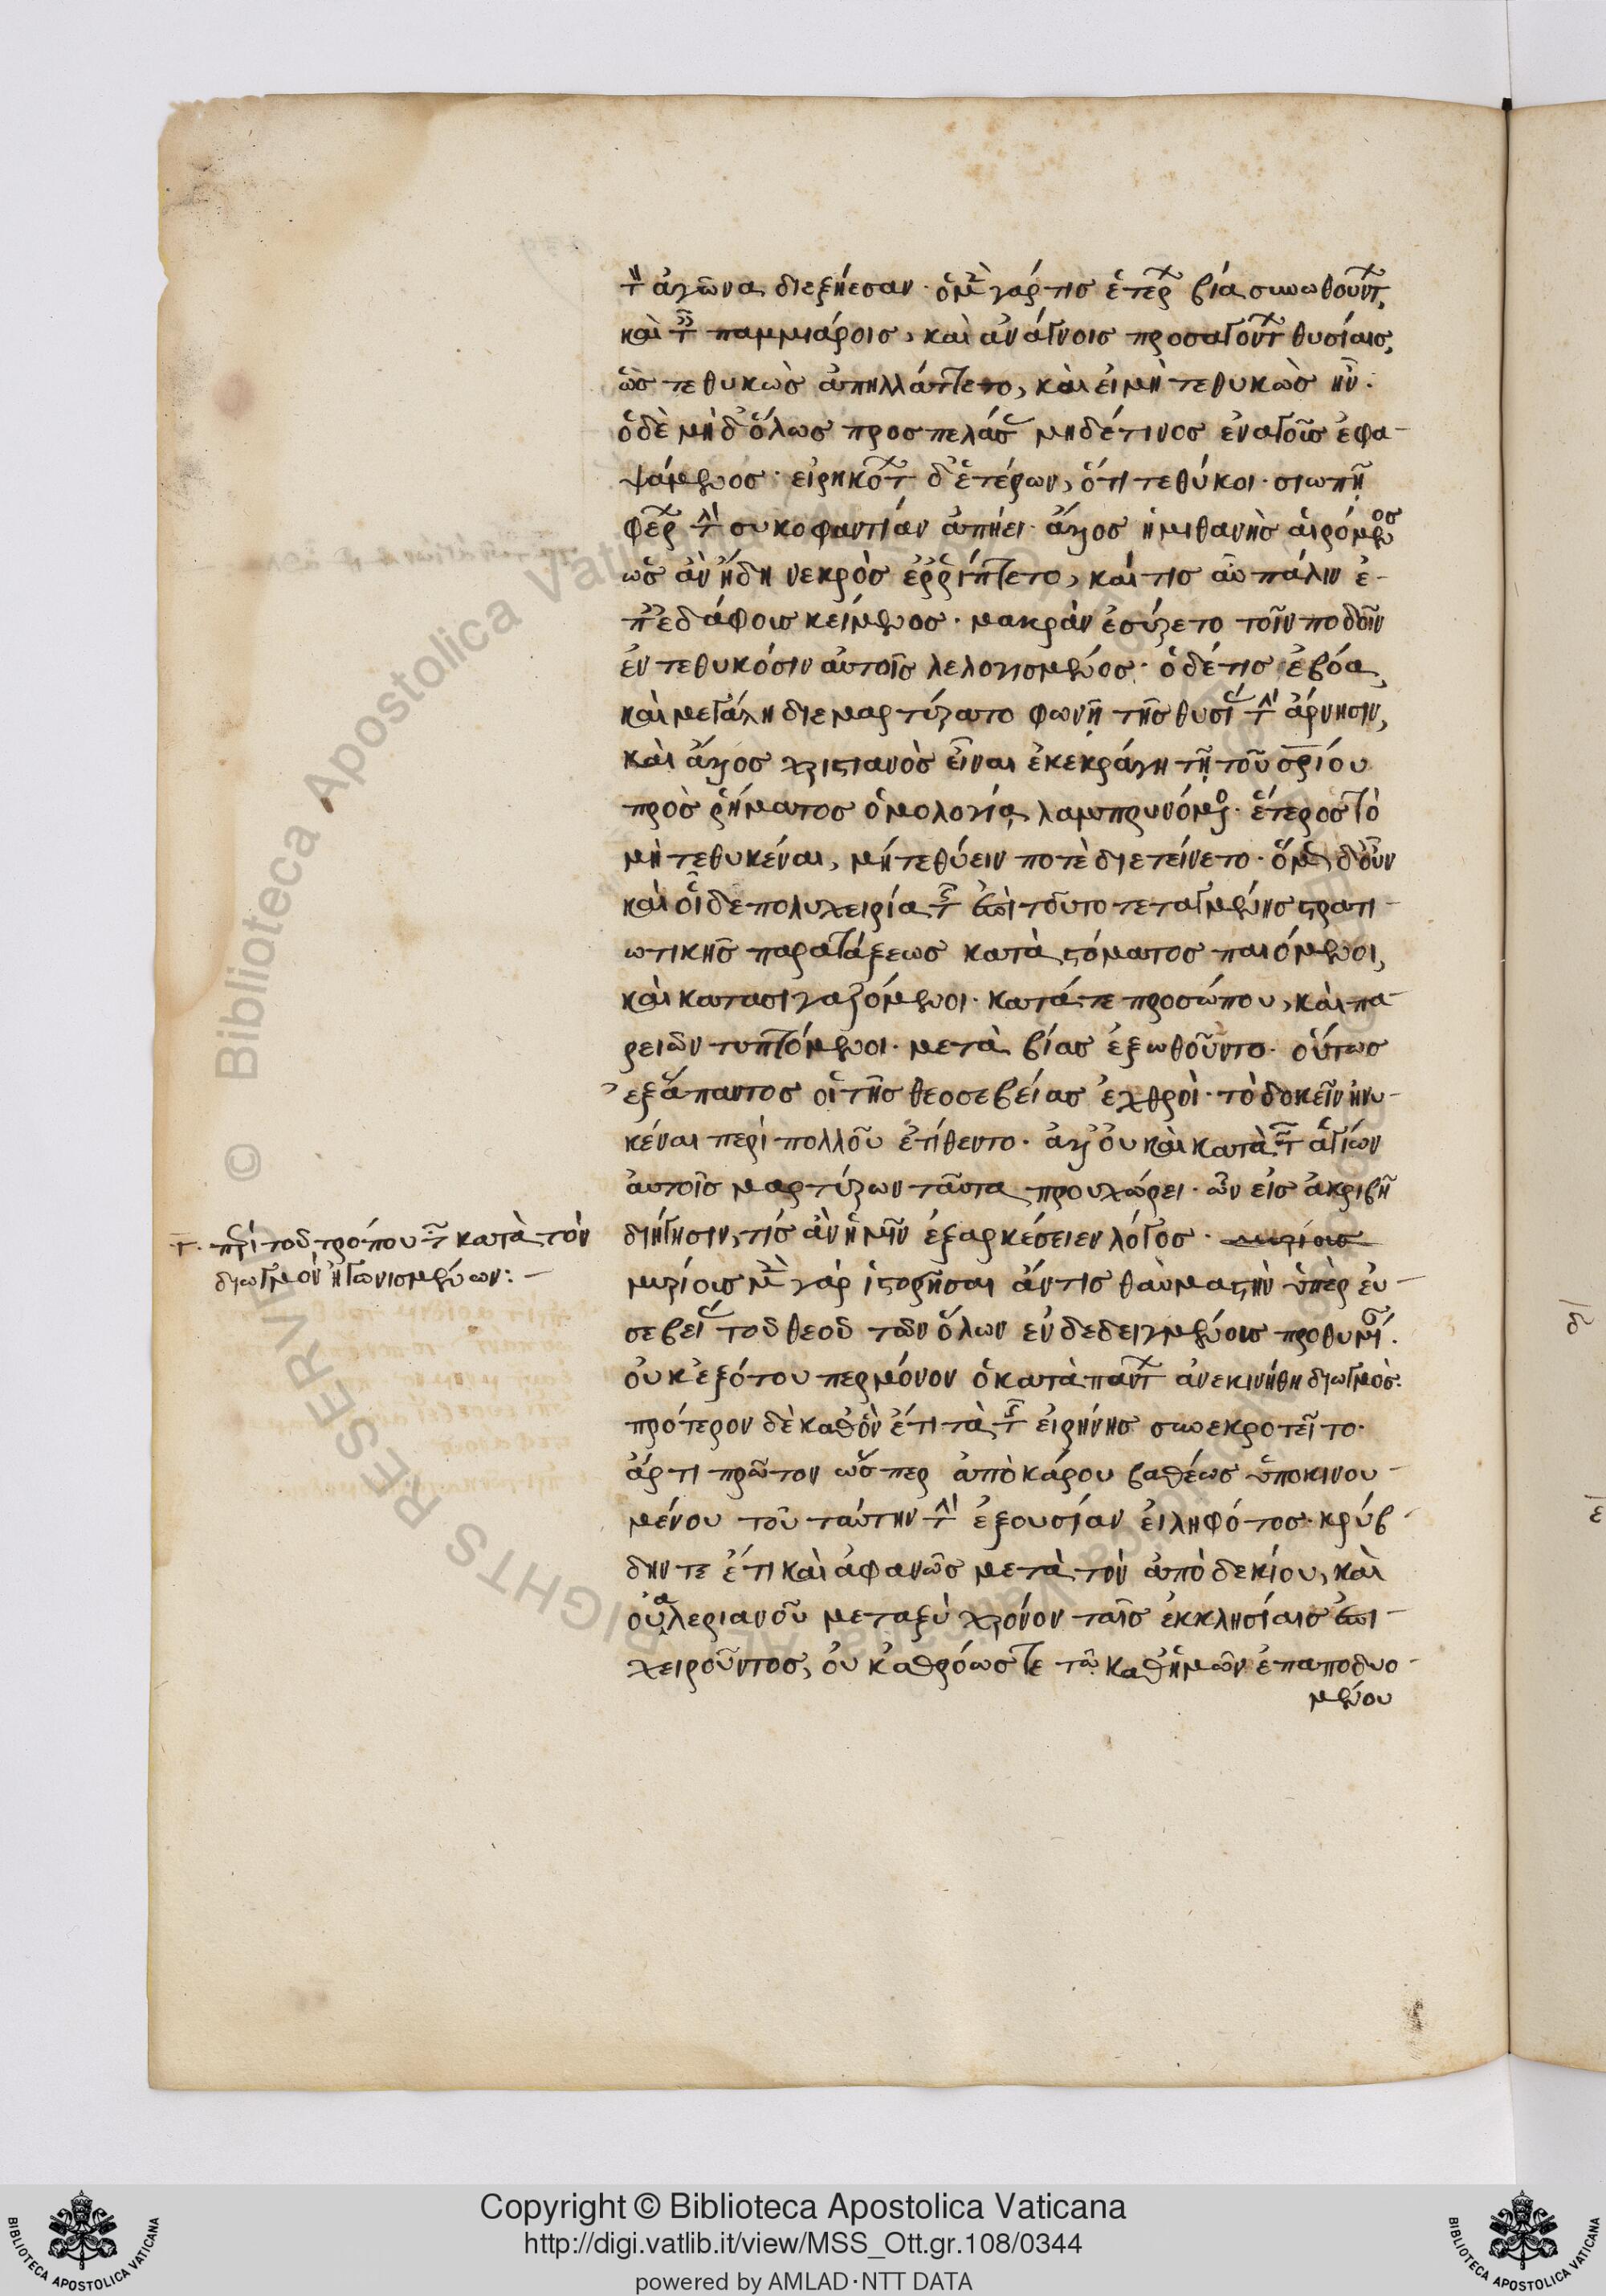 τὸν ἀγῶνα διεξῄεσαν· ὁ μὲν γάρ τις ἑτέρων βίᾳ συνωθούντων,
καὶ ταῖς παμμιάροις, καὶ ἀνάγνοις προσαγόντων θυσίαις,
ὡς τεθυκὼς ἀπηλλάττετο, καὶ εἰ μὴ τεθυκὼς ἦν·
ὁ δὲ μὴδ' ὅλως προσπελάσας μηδέ τινος ἐναγοῦς ἐφα-
ψάμενος· εἰρηκότων δ' ἑτέρων, ὅτι τεθύκοι· σιωπῇ
φέρων τὴν συκοφαντίαν ἀπῄει· ἄλλος ἡμιθανὴς αἰρόμενος
ὡς ἂν ἤδη νεκρὸς ἐρρίπτετο, καί τις αὖ πάλιν ἐ-
π' ἐδάφους κείμενος· μακρὰν ἐσύρετο τοῖν ποδοῖν
ἐν τεθυκόσιν αὐτοῖς λελογισμένος· ὁ δέ τις ἐβόα,
καὶ μεγάλῃ διεμαρτύρατο φωνῇ τῆς θυσίας τὴν ἄρνησιν,
καὶ ἄλλος χριστιανὸς εἶναι ἐκεκράγη τῇ τοῦ σρίου
πρὸς ῥήματος ὁμολογίᾳ λαμπρυνόμενος· ἕτερος τὸ
μὴ τεθυκέναι, μήτε θύειν ποτὲ διετείνετο· ὅμως δ' οὖν
καὶ οἵδε πολυχειρίᾳ τῆς ἐπὶ τοῦτο τεταγμένης στρατι-
ωτικῆς παρατάξεως κατὰ στόματος παιόμενοι,
καὶ κατασιγαζόμενοι· κατά τε προσώπου, καὶ πα-
ρειῶν τυπτόμενοι· μετὰ βίας ἐξωθοῦντο· οὕτως
ἐξ ἅπαντος οἱ τῆς θεοσεβείας ἐχθροὶ· τὸ δοκεῖν ἠνυ-
κέναι περὶ πολλοῦ ἐτίθεντο· ἀλλ' οὐ καὶ κατὰ τῶν ἁγίων
αὐτοῖς μαρτύρων ταῦτα προυχώρει· ὧν εἰς ἀκριβῆ
διήγησιν, τίς ἂν ἡμῖν ἐξαρκέσειεν λόγος· μυρίους
γ. περὶ τοῦ τρόπου τῶν κατὰ τὸν
διωγμὸν ἠγωνισμένων:-
μυρίους μὲν γὰρ ἱστορῆσαι ἄν τις θαυμαστὴν ὑπὲρ εὐ-
σεβείας τοῦ θεοῦ τῶν ὅλων ἐνδεδειγμένους προθυμίαν.
οὐκ ἐξ ὅτου περ μόνον ὁ κατὰ πάντων ἀνεκινήθη διωγμὸς:
πρότερον δὲ καθ' ὃν ἔτι τὰ τῆς εἰρήνης συνεκροτεῖτο·
ἄρτι πρῶτον ὥσπερ ἀπὸ κάρου βαθέως ὑποκινου-
μένου τοῦ ταύτην τὴν ἐξουσίαν εἰληφότος· κρύβ-
δην τε ἔτι καὶ ἀφανῶς μετὰ τὸν ἀπὸ δεκίου, καὶ
οὐαλεριανοῦ μεταξὺ χρόνον ταῖς ἐκκλησίαις ἐπι-
χειροῦντος, οὐκ ἀθρόως τε τῷ καθ' ἡμῶν ἐπαποδυο-
μένου
Copyright © Biblioteca Apostolica Vaticana
http://digi.vatlib.it/view/MSS_Ott.gr.108/0344
powered by AMLAD·NTT DATA